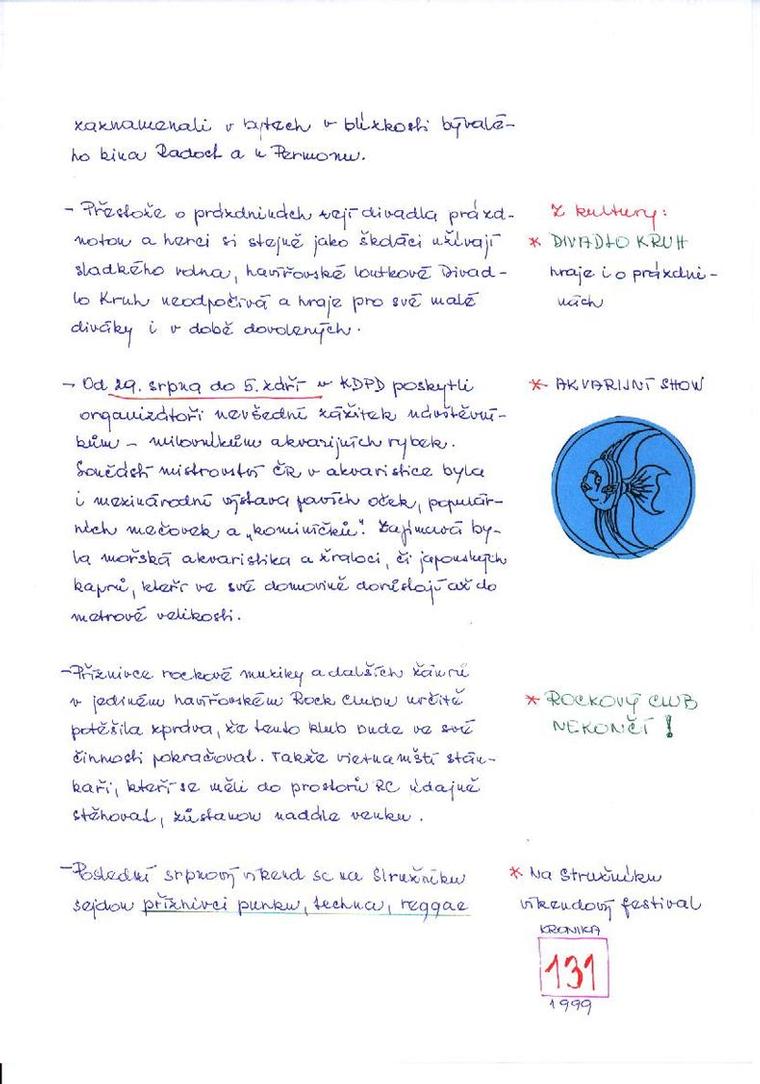 zaznamenali v bytech v blízkosti bývalé-
ho kina Radost a u Permonu.
- Přestože o prázdninách zejí divadla prázd-
notou a herci si stejně jako školáci užívají
sladkého volna, havířovské loutkové Divad-
lo Kruh neodpočívá a hraje pro své malé
diváky i v době dovolených.
Z kultury:
* DIVADLO KRUH
hraje i o prázdni-
nách
- Od 29. srpna do 5. září v KDPD poskytli
organizátoři nevšední zážitek návštěvní-
kům - milovníkům akvarijních rybek.
Součástí mistrovství ČR v akvaristice byla
i mezinárodní výstava pavích oček, populár-
ních mečovek a „komíníčků". Zajímavá by-
la mořská akvaristika a žraloci, či japonských
kaprů, kteří ve své domovině dorůstají až do
metrové velikosti.
* AKVARIJNÍ SHOW
- Příznivce rockové muziky a dalších žánrů
v jediném havířovském Rock Clubu určitě
potěšila zpráva, že tento klub bude ve své
činnosti pokračovat. Takže vietnamští stán-
kaři, kteří se měli do prostorů RC údajně
stěhovat, zůstanou nadále venku.
* ROCKOVÝ CLUB
NEKONČÍ!
- Poslední srpnový víkend se na Stružníku
sejdou příznivci punku, techna, reggae
* Na Stružníku
víkendový festival
KRONIKA
131
1999